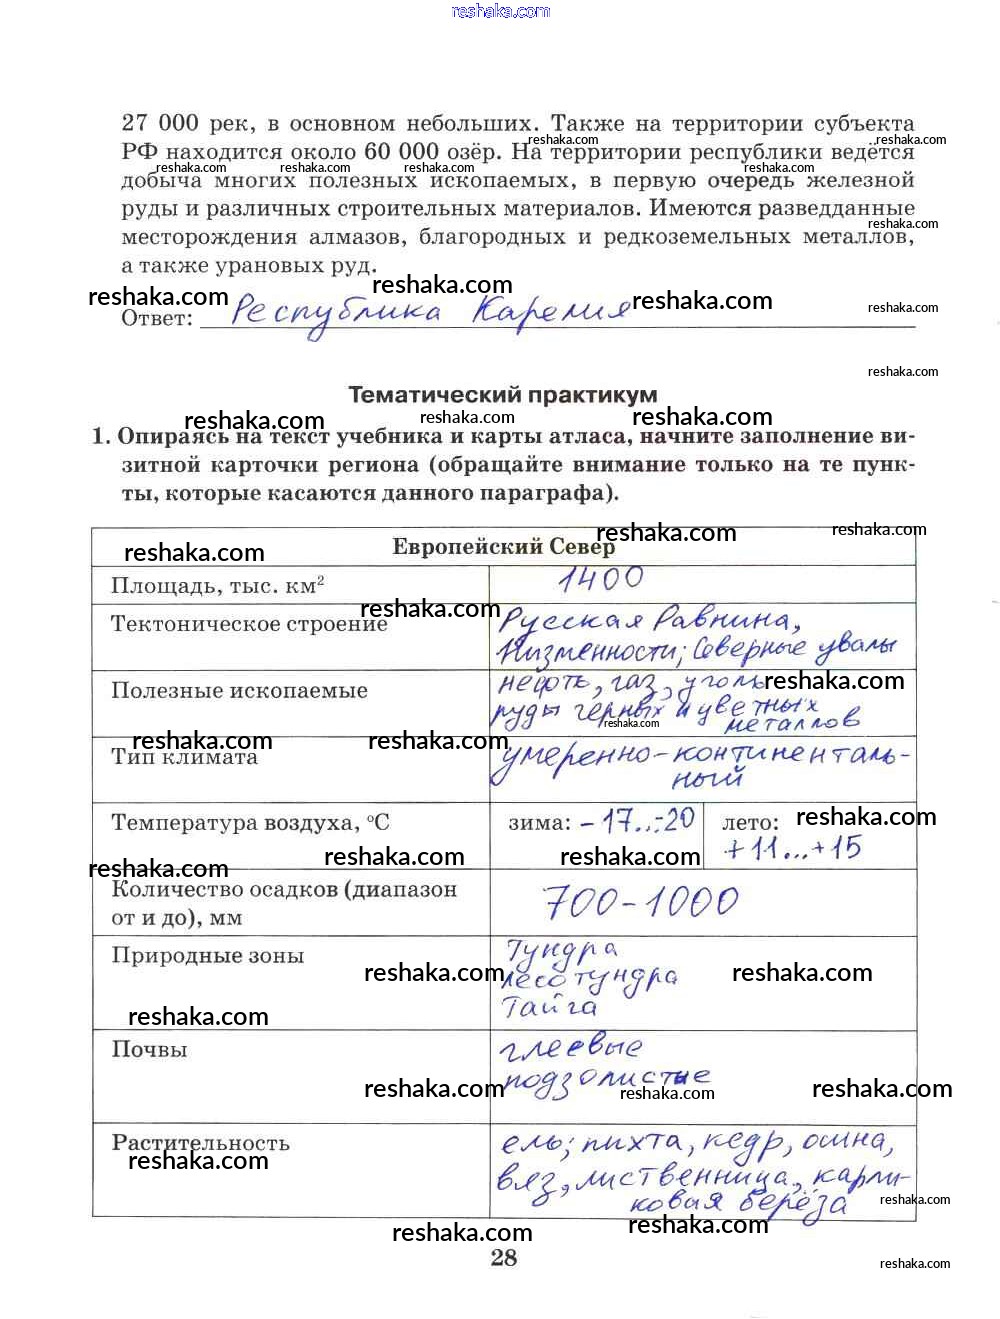 reshaka.com
27 000 рек, в основном небольших. Также на территории субъекта
РФ находится около 60 000 озёр. На территории республики ведётся
добыча многих полезных ископаемых, в первую очередь железной
руды и различных строительных материалов. Имеются разведданные
месторождения алмазов, благородных и редкоземельных металлов,
а также урановых руд.
Ответ: Республика Карелия
Тематический практикум
1. Опираясь на текст учебника и карты атласа, начните заполнение ви-
зитной карточки региона (обращайте внимание только на те пунк-
ты, которые касаются данного параграфа).
Европейский Север
Площадь, тыс. км² 1400
Тектоническое строение Русская Равнина,
Низменности; Северные увалы
Полезные ископаемые нефть, газ, уголь
руды чёрных и цветных
металлов
Тип климата умеренно-континенталь-
ный
Температура воздуха, °С зима: -17...-20 лето:
+11...+15
Количество осадков (диапазон
от и до), мм 700-1000
Природные зоны Тундра
лесотундра
Тайга
Почвы глеевые
подзолистые
Растительность ель; пихта, кедр, осина,
вяз, лиственница, карли-
ковая берёза
28